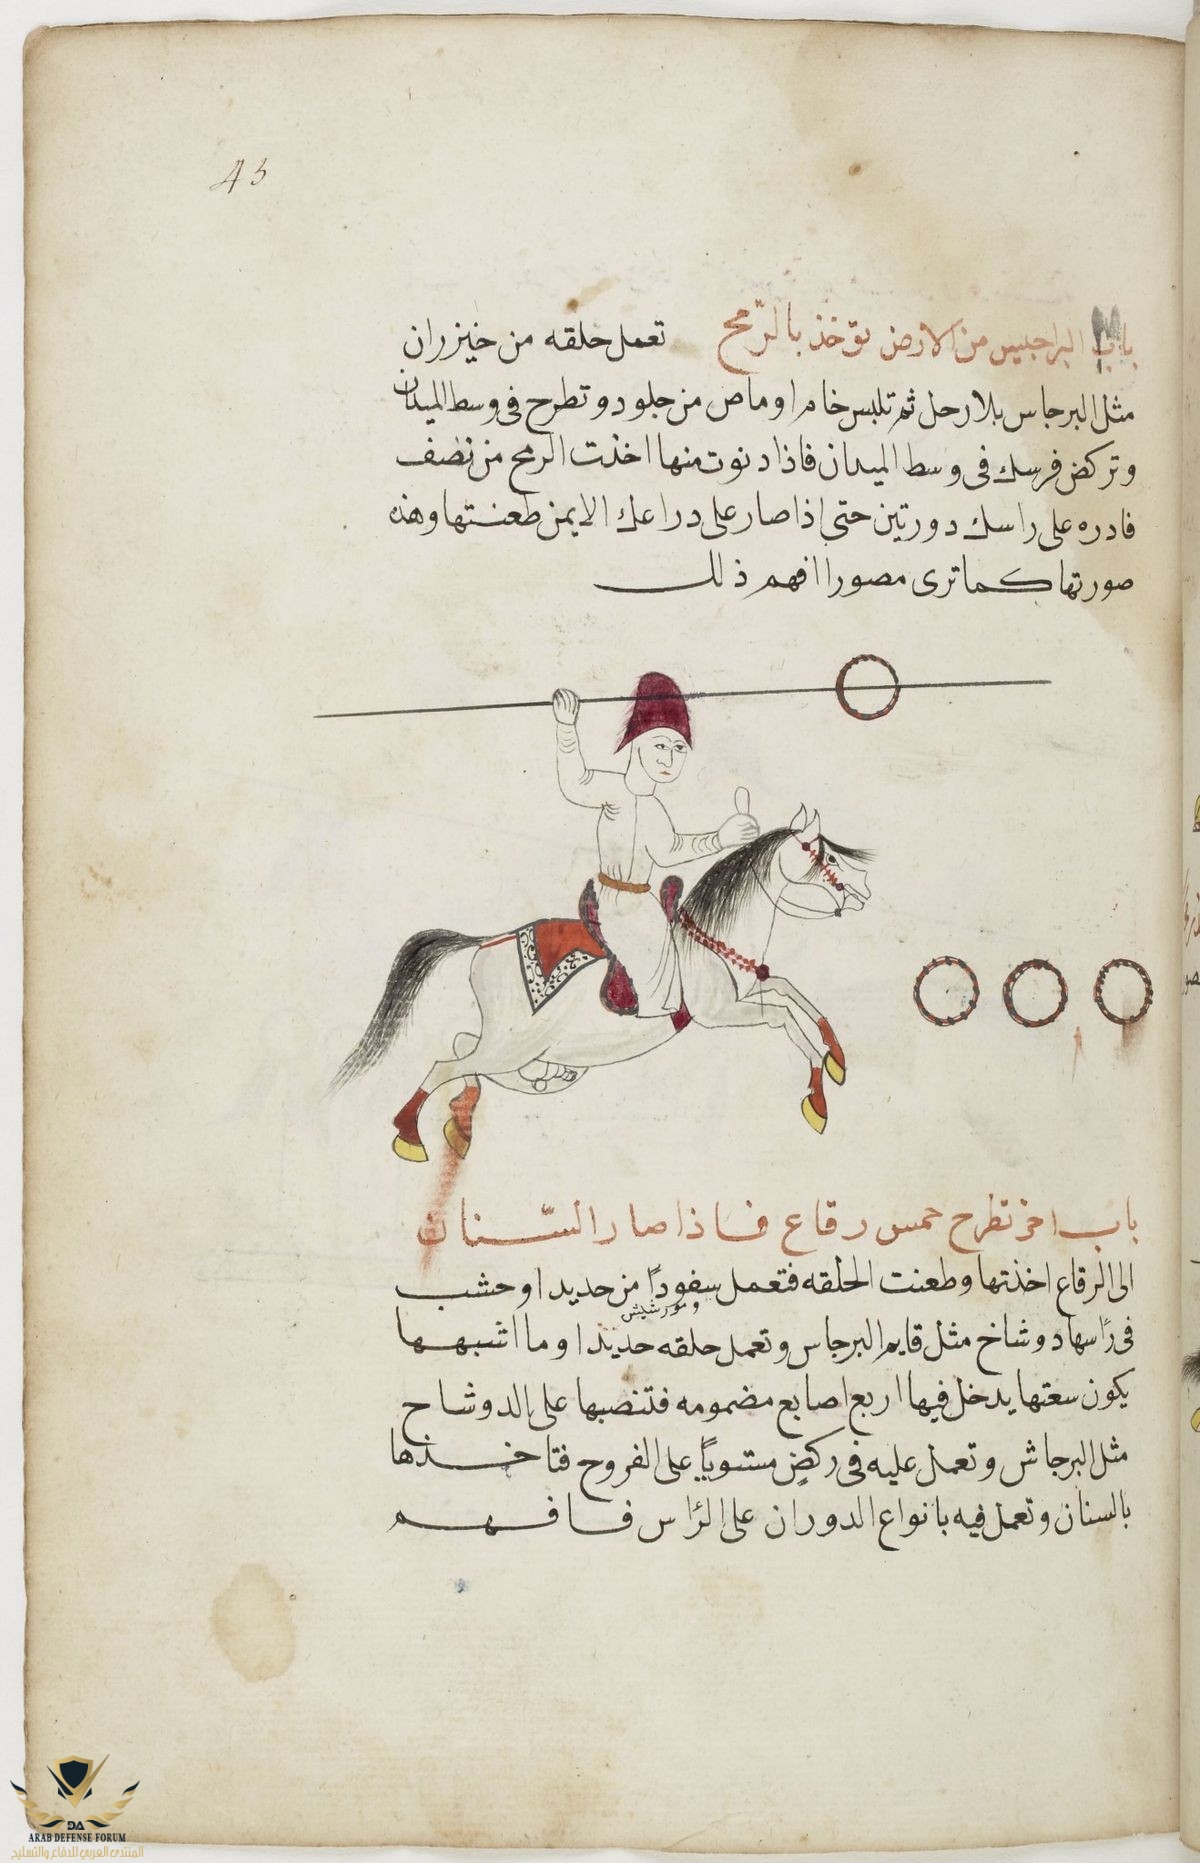 43
باب البراجيس من الارض تؤخذ بالرّمح تعمل حلقه من خيزران
مثل البرجاس بلا رحل ثم تلبس خام او ماص من جلود وتطرح فى وسط الميدان
وتركض فرسك فى وسط الميدان فاذا دنوت منها اخذت الرمح من نصف
فادره على راسك دورتين حتى اذا صار على دراعك الايمن طعنتها وهذه
صورتها كما ترى مصورا افهم ذلك
باب اخر تطرح خمس رقاع فاذا صار السّنان
الى الرقاع اخذتها وطعنت الحلقه فتعمل سفودًا من حديد او خشب
فى رأسها دوشاخ مثل قايم البرجاس وتعمل حلقه حديدا او ما اشبهها
يكون سعتها يدخل فيها اربع اصابع مضمومه فتنصبها على الدوشاخ
مثل البرجاش وتعمل عليه فى ركضٍ مستويًا على الفروح فتاخذها
بالسنان وتعمل فيه بانواع الدوران على الرأس فافهم
DA
ARAB DEFENSE FORUM
المنتدى العربي للدفاع والتسليح